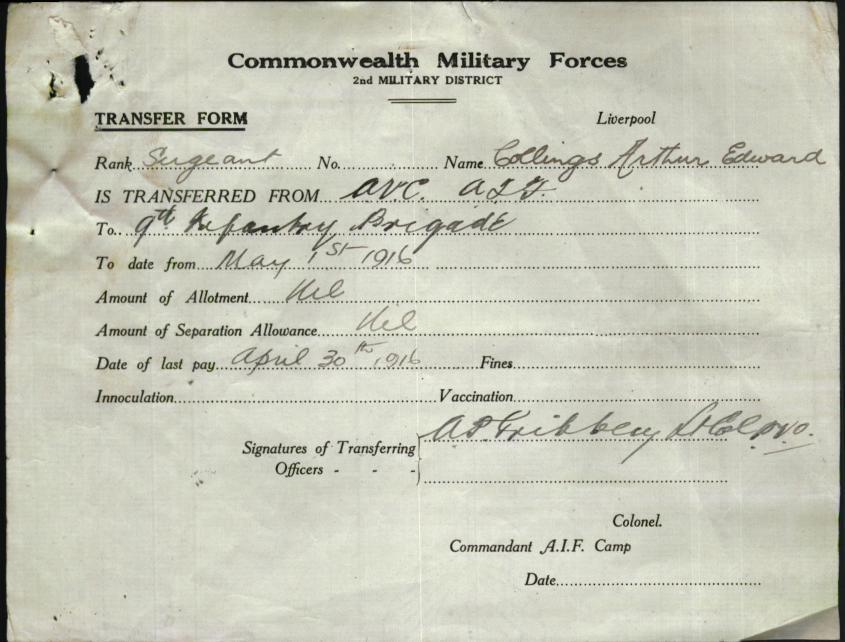 Commonwealth Military Forces
2nd MILITARY DISTRICT
TRANSFER FORM Liverpool
Rank Sergeant No. Name Collings Arthur Edward
IS TRANSFERRED FROM AVC. AIF.
To 9th Infantry Brigade
To date from May 1st 1916
Amount of Allotment Nil
Amount of Separation Allowance Nil
Date of last pay April 30th 1916 Fines
Innoculation Vaccination
Signatures of Transferring
Officers - - -
Lt Col PVO.
Colonel.
Commandant A.I.F. Camp
Date